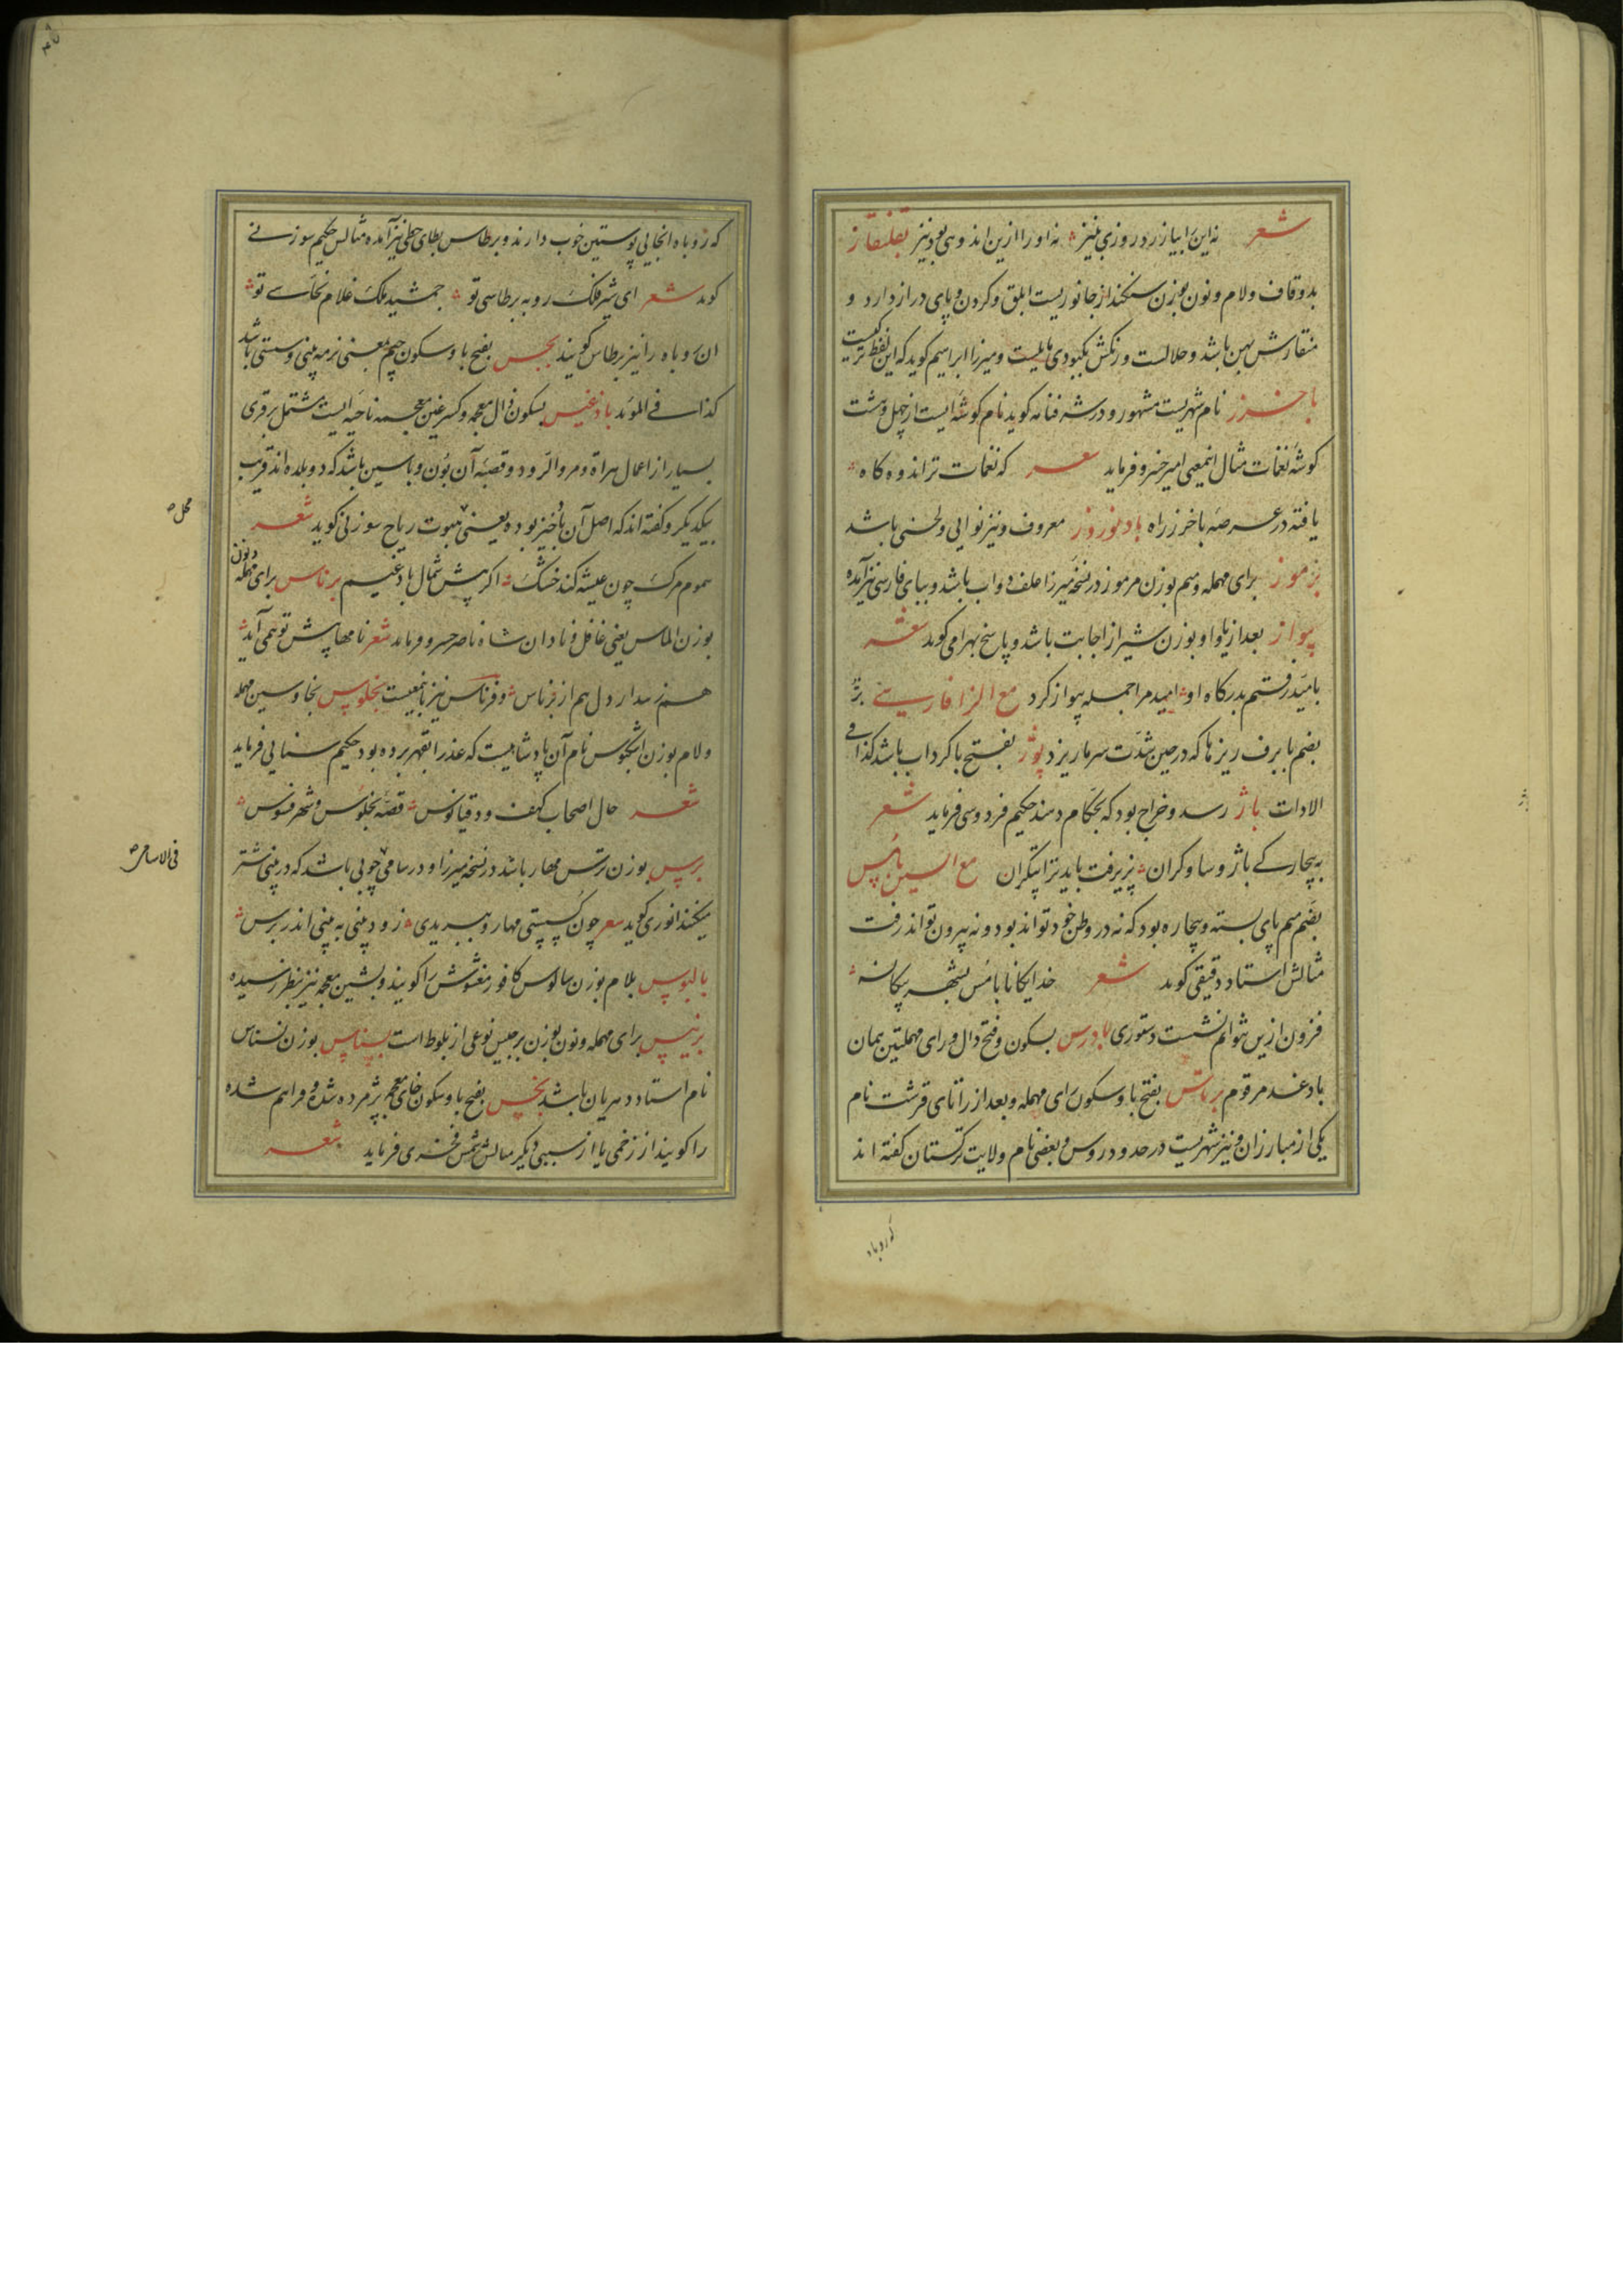 شعر نه این را بیازرد روزی بنیز نه او را ازین اندوهی بود نیز بقلنقاز
بدو قاف و لام و نون بوزن سکنداز جانوریست ابلق و کردن و پای دراز دارد و
منقارش پهن باشد و حلالست و رنکش بکبودی مایلست و میرزا ابراهیم کوید که این لفظ ترکیست
باخرز نام شهریست مشهور و در شرفنامه کوید نام کوشه ایست از چهل و هشت
کوشه نغمات مثال اینمعنی امیر خسرو فرماید شعر که نغمات تر اندوه کاه
یافته در عرصه باخرز راه باد نوروز معروف و نیز نوایی و لحنی باشد
بزموز برای مهمله و میم بوزن مرموز در نسخه میرزا علف دواب باشد و ببای فارسی نیز آمده
پیواز بعد از یا واو بوزن شیراز اجابت باشد و پاسخ بهرامی کوید شعر
بامید رفتم بدرکاه او امید مرا جمله پیواز کرد مع الزا فارسی بژ
بضم با برف ریزها که در حین شدت سرما ریزد پوژ بفتح با کرداب باشد کذا فی
الادات باژ رسد و خراج بود که بحکام دهند حکیم فردوسی فرماید شعر
به بیچارکی باژ و ساو کران پزیرفت باید ترا بیکران مع السین بامس
بضم میم پای بسته و بیچاره بود که نه در وطن خود تواند بود و نه بیرون تواند رفت
مثالش استاد دقیقی کوید شعر خدایکانا بامس بشهر بیکانه
فزون ازین نتوانم نشست دستوری بادرس بسکون و فتح دال و رای مهملتین همان
بادغند مرقوم برتاس بفتح با و سکون رای مهمله و بعد از را تای قرشت نام
یکی از مبارزان و نیز شهریست در حدود روس و بعضی نام ولایت ترکستان کفته اند
که روباه
که روباه انجایی پوستین خوب دارند و برطاس بطای حطی نیز آمده مثالس حکیم سوزنی
کوید شعر ای شیر فلک روبه برطاسی تو جمشید ملک غلام نخاسی تو
ان روباه را نیز برطاس کویند بجس بفتح با و سکون جیم بمعنی نرمه بینی و سستی باشد
کذا فی الموید بادغیس بسکون ذال معجمه و کسر غین معجمه ناحیه ایست مشتمل بر قری
بسیار از اعمال هراة و مرو الرود و قصبه آن بون و بامیین باشد که دو بلده اند قریب
بیکدیکر و کفته اند که اصل آن بادخیز بوده یعنی محل هبوت ریاح سوزنی کوید شعر
سموم مرک چون عیشه کند خشک اکر پیش شمال بادغیسم برناس برای مهمله و نون
بوزن الماس یعنی غافل و نادان شاه ناصر خسرو فرماید شعر نامها پیش تو همی آید
هم ز بیدار دل هم از برناس و فرناس نیز باینمعنیست بخلوس بخا و سین مهمله
و لام بوزن اشکبوس نام آن پادشاهیست که عذرا بقهر برده بود حکیم سنایی فرماید
شعر حال اصحاب کهف و دقیانوس قصه بخلوس و شهر فسوس
برس بوزن ترس مهار باشد در نسخه میرزا و در سامی چوبی باشد که در بینی شتر
میکنند انوری کوید شعر چون کسستی مهار و ببریدی زود بینی به بینی اندر برس
بالوس بلام بوزن سالوس کافور مغشوش را کویند و بشین معجمه نیز بنظر رسیده
برنیس برای مهمله و نون بوزن برجیس نوعی از بلوط است بسناس بوزن نسناس
نام استاد دهریان باشد بخس بفتح با و سکون خای معجمه پژمرده شده و فراهم شده
را کویند از زخمی یا از سببی دیکر مثالش شمس فخری فرماید شعر
محل صح
فی الاسامی صح